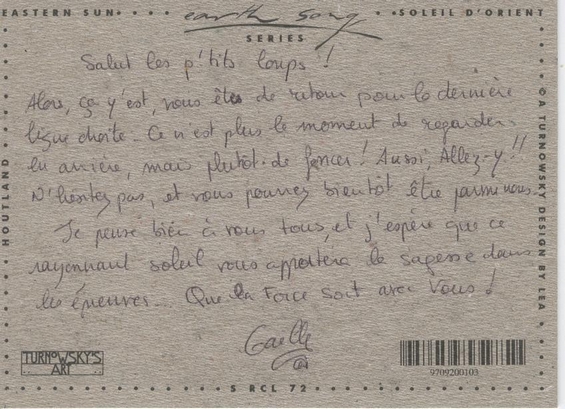 EASTERN SUN
earth song
SOLEIL D'ORIENT
SERIES
Salut les p'tits loups !
Alors, ça y'est, vous êtes de retour pour la dernière
ligne droite. Ce n'est plus le moment de regarder
en arrière, mais plutôt de foncer ! Aussi, Allez-y !!
N'hésitez pas, et vous pourrez bientôt être parmi nous.
Je pense bien à vous tous, et j'espère que ce
rayonnant soleil vous apportera la sagesse dans
les épreuves... Que la Force soit avec Vous !
Gaelle
HOUTLAND
©A TURNOWSKY DESIGN BY LEA
TURNOWSKY'S
ART
9709200103
S RCL 72